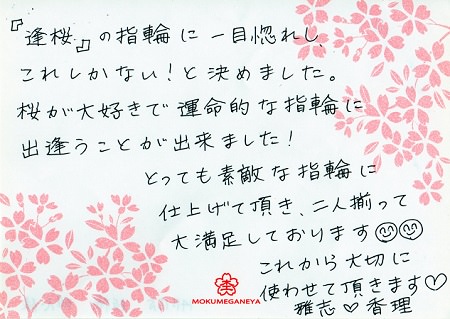 『逢桜』の指輪に一目惚れし、
これしかない!と決めました。
桜が大好きで運命的な指輪に
出逢うことが出来ました!
とっても素敵な指輪に
仕上げて頂き、二人揃って
大満足しております
これから大切に
使わせて頂きます♡
雅志♡香理
MOKUMEGANEYA